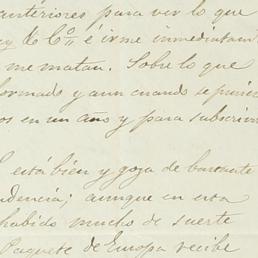 anteriores para ver lo que
y & Cº é irme inmediatam
me matan. Sobre lo que
formado y aun cuando se
os en un año y para subscrim
está bien y goza de bastante
dencia; aunque en esta
habido mucho de suerte
Paquete de Europa recibe